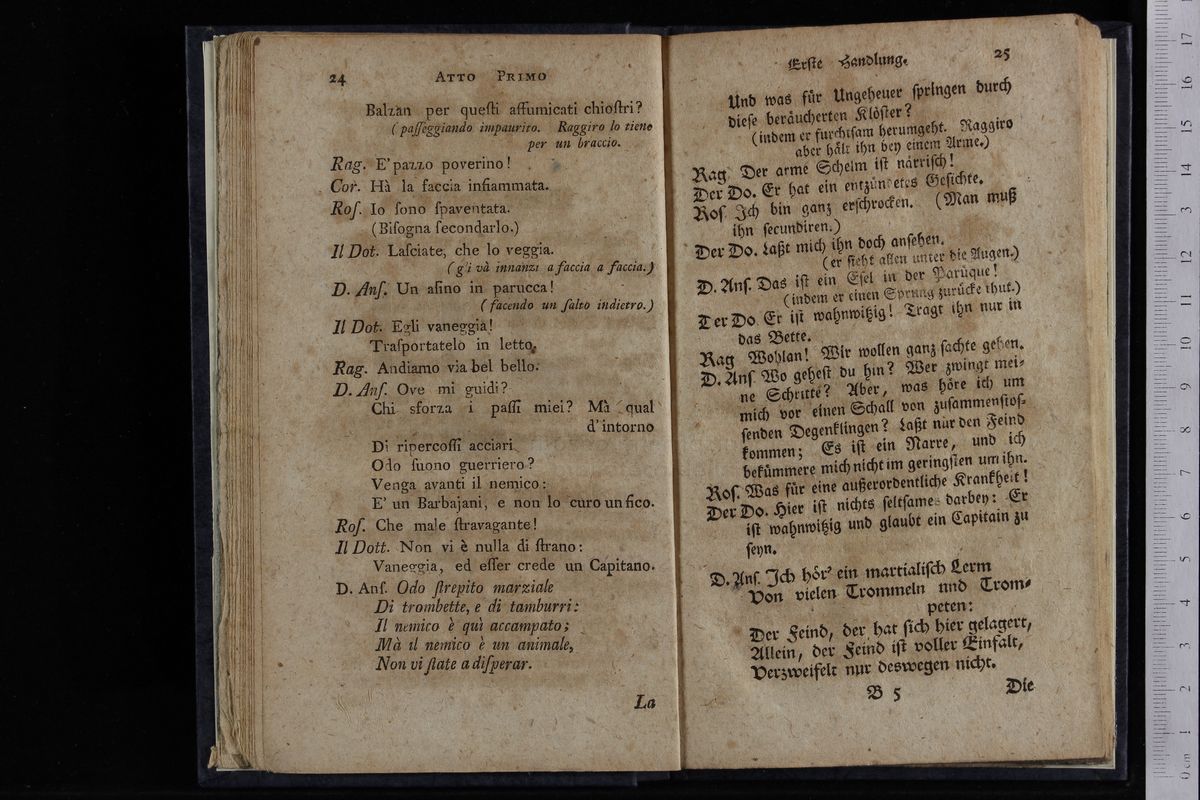 24 ATTO PRIMO
Balzan per queſti affumicati chioſtri?
(paſſeggiando impaurito. Raggiro lo tiene
per un braccio.
Rag. E' pazzo poverino!
Cor. Hà la faccia infiammata.
Roſ. Io ſono ſpaventata.
(Biſogna ſecondarlo.)
Il Dot. Laſciate, che lo veggia.
(gli và innanzi a faccia a faccia.)
D. Anſ. Un aſino in parucca!
(facendo un ſalto indietro.)
Il Dot. Egli vaneggia!
Traſportatelo in letto.
Rag. Andiamo via bel bello.
D. Anſ. Ove mi guidi?
Chi sforza i paſſi miei? Mà qual
d'intorno
Di ripercoſſi acciari
Odo ſuono guerriero?
Venga avanti il nemico:
E' un Barbajani, e non lo curo un fico.
Roſ. Che male ſtravagante!
Il Dott. Non vi è nulla di ſtrano:
Vaneggia, ed eſſer crede un Capitano.
D. Anſ. Odo ſtrepito marziale
Di trombette, e di tamburri:
Il nemico è quì accampato;
Mà il nemico è un animale,
Non vi ſtate a diſperar.
La
Erſte Handlung. 25
Und was für Ungeheuer ſpringen durch
dieſe beräucherten Klöſter?
(indem er furchtſam herumgeht. Raggiro
aber hält ihn bey einem Arme.)
Rag Der arme Schelm iſt närriſch!
Der Do. Er hat ein entzündetes Geſichte.
Roſ. Ich bin ganz erſchrocken. (Man muß
ihn ſecundiren.)
Der Do. Laßt mich ihn doch anſehen.
(er ſieht allen unter die Augen.)
D. Anſ. Das iſt ein Eſel in der Parüque!
(indem er einen Sprung zurücke thut.)
Der Do. Er iſt wahnwitzig! Tragt ihn nur in
das Bette.
Rag Wohlan! Wir wollen ganz ſachte gehen.
D. Anſ Wo geheſt du hin? Wer zwingt mei-
ne Schritte? Aber, was höre ich um
mich vor einen Schall von zuſammenſtoſ-
ſenden Degenklingen? Laßt nur den Feind
kommen; Es iſt ein Narre, und ich
bekümmere mich nicht im geringſten um ihn.
Roſ. Was für eine außerordentliche Krankheit!
Der Do. Hier iſt nichts ſeltſames darbey: Er
iſt wahnwitzig und glaubt ein Capitain zu
ſeyn.
D. Anſ. Ich hör' ein martialiſch Lerm
Von vielen Trommeln und Trom-
peten:
Der Feind, der hat ſich hier gelagert,
Allein, der Feind iſt voller Einfalt,
Verzweifelt nur deswegen nicht.
B 5 Die
0 cm 1 2 3 4 5 6 7 8 9 10 11 12 13 14 15 16 17